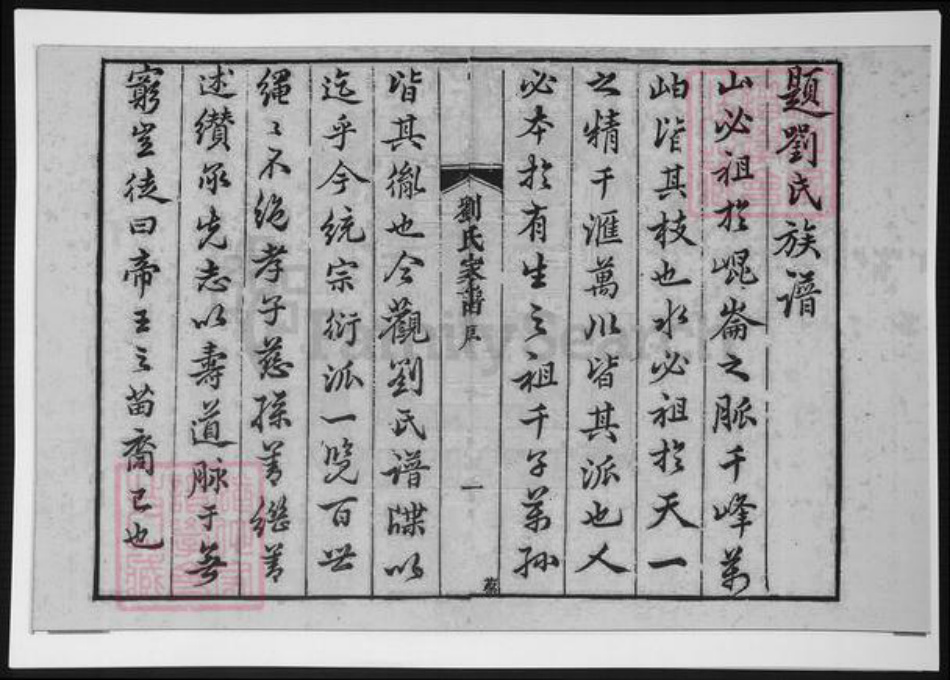 題劉氏族譜
山必祖於崐崙之脈千峰萬
岫皆其枝也水必祖於天一
之精千滙萬川皆其派也人
必本於有生之祖千子萬孫
劉氏家譜序
一
皆其胤也今觀劉氏譜牒以
迄乎今統宗衍派一覽百世
繩〻不絕孝子慈孫善繼善
述纘承先志以壽道脉于無
窮豈徒曰帝王之苗裔已也
FamilySearch